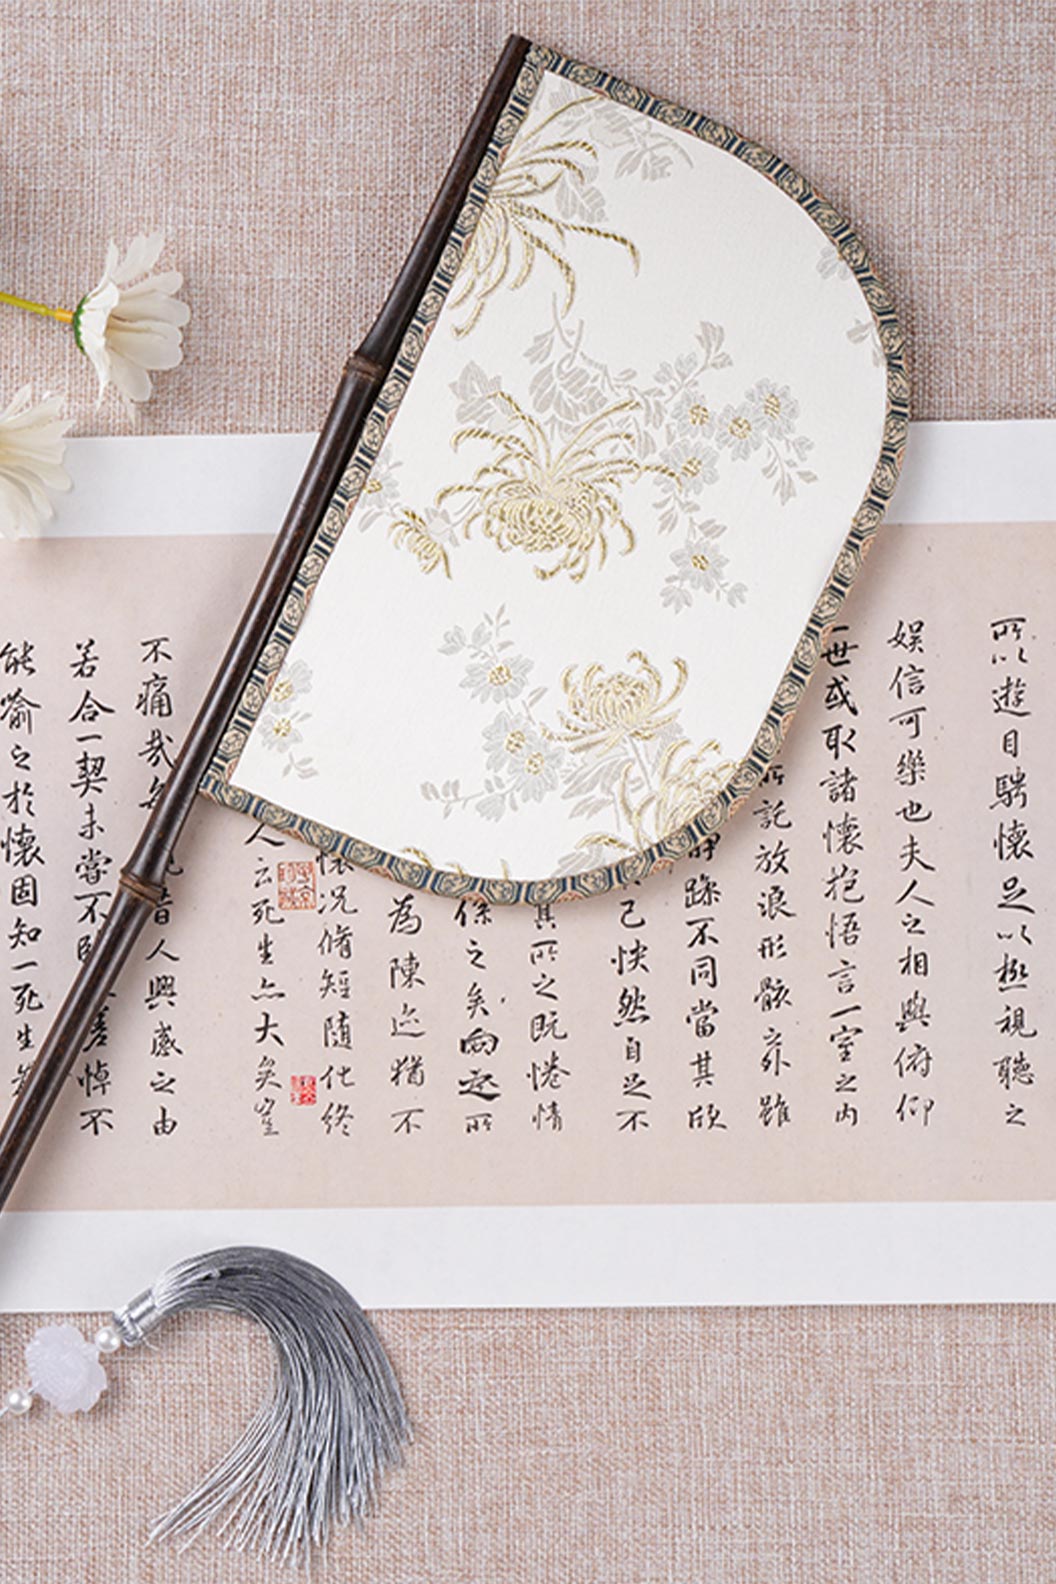 所以遊目騁懷足以極視聽之
娱信可樂也夫人之相與俯仰
一世或取諸懷抱悟言一室之内
所託放浪形骸之外雖
躁不同當其欣
己快然自足不
其所之既惓情
係之矣向之所
為陳迹猶不
況脩短隨化終
人云死生亦大矣豈
不痛哉每昔人興感之由
若合一契未嘗不悼不
能喻之於懷固知一死生